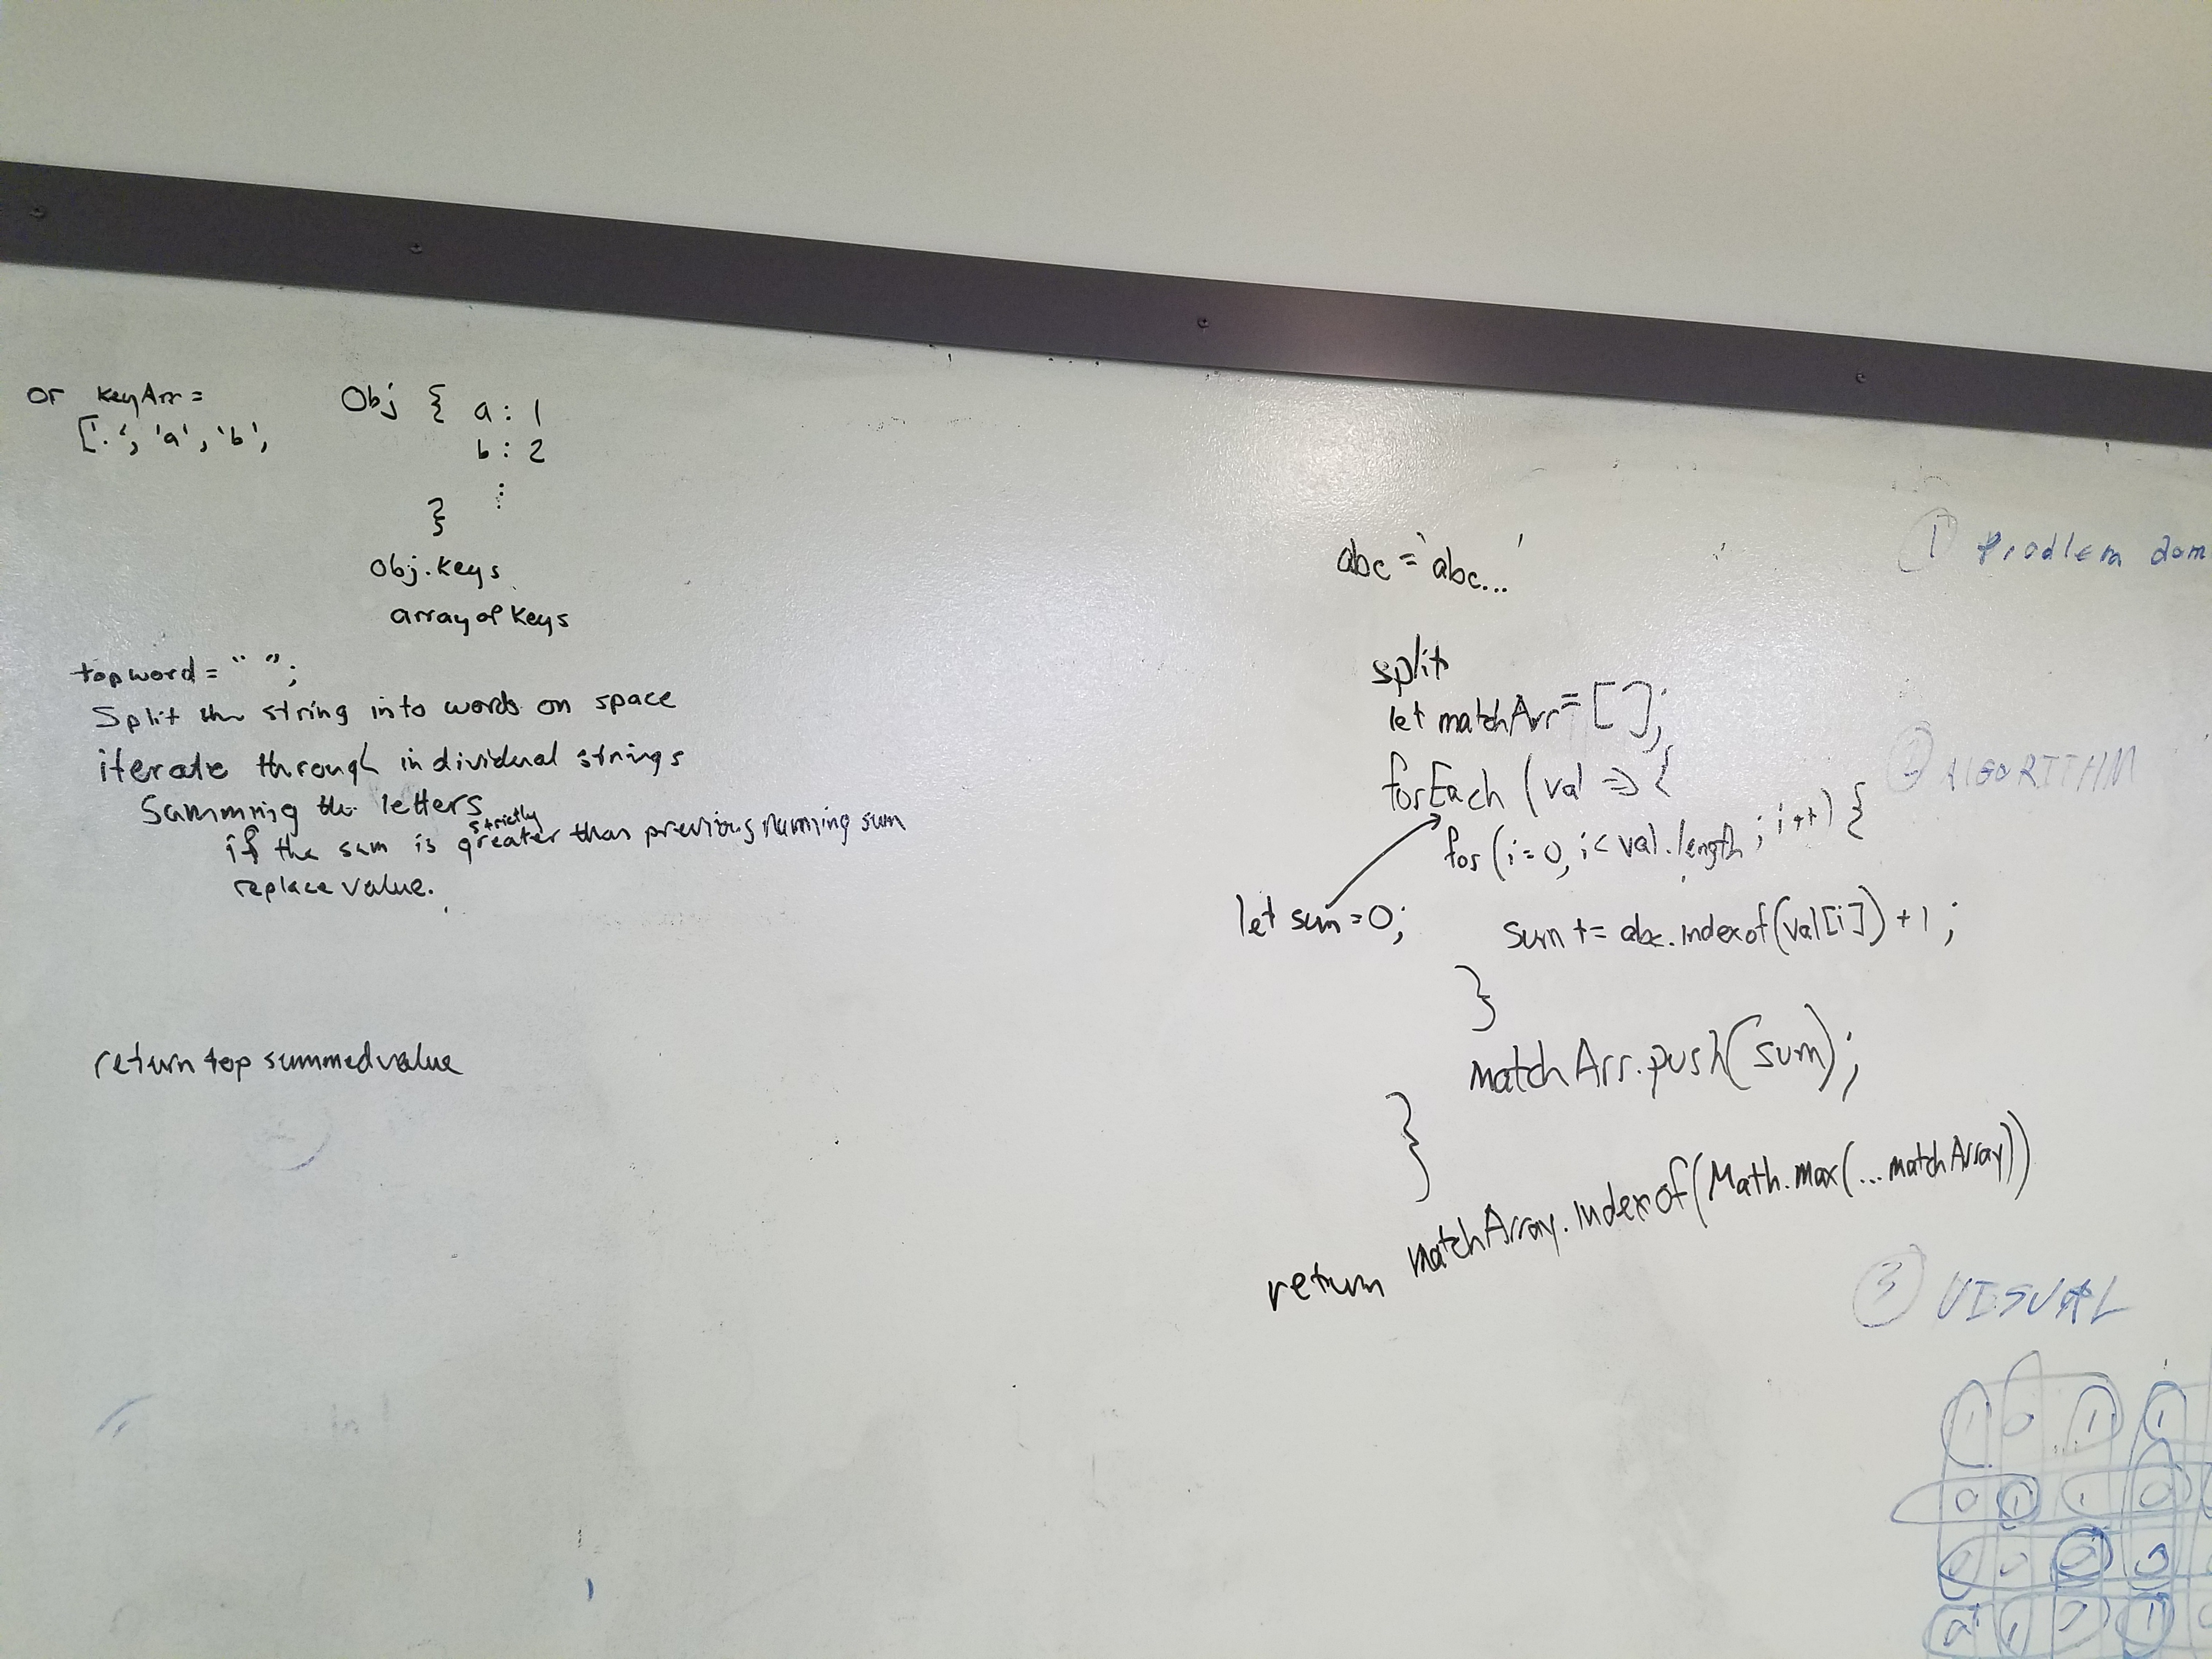 or keyArr =
['.', 'a', 'b',
Obj { a : 1
b : 2
⋮
}
Obj.keys
array of keys
topword = " ";
Split the string into words on space
iterate through individual strings
Summing the letters
if the sum is strictly greater than previous running sum
replace value.
return top summed value
abc = 'abc... '
split
let matchArr = [ ];
forEach (val => {
for (i = 0, i < val.length ; i++) {
let sum = 0;
sum += abc.indexof(val[i]) + 1 ;
}
matchArr.push(sum);
}
return matchArray.indexof(Math.max(...matchArray))
1 Problem dom
2 ALGORITHM
3 VISUAL
1 0 1 1
0 1 1 0